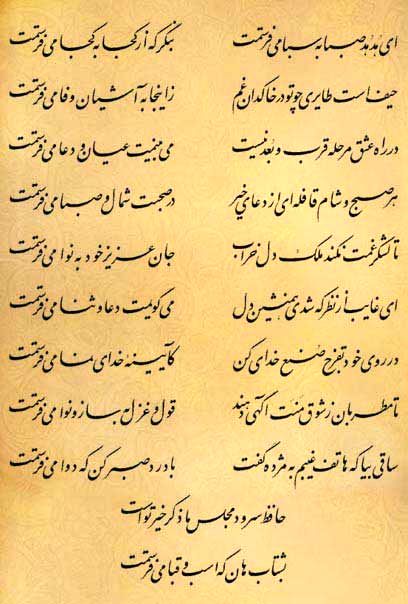 ای هدهد صبا به سبا می فرستمت    بنگر که از کجا به کجا می فرستمت
حیف است طایری چو تو در خاکدان غم    زاینجا به آشیان وفا می فرستمت
در راه عشق مرحله قرب و بعد نیست    می بینمت عیان و دعا می فرستمت
هر صبح و شام قافله ای از دعای خیر    در صحبت شمال و صبا می فرستمت
تا لشکر غمت نکند ملک دل خراب    جان عزیز خود به نوا می فرستمت
ای غایب از نظر که شدی همنشین دل    می گویمت دعا و ثنا می فرستمت
در روی خود تفرج صنع خدای کن    کآیینه خدای نما می فرستمت
تا مطربان ز شوق منت آگهی دهند    قول و غزل به ساز و نوا می فرستمت
ساقی بیا که هاتف غیبم به مژده گفت    با درد صبر کن که دوا می فرستمت
حافظ سرود مجلس ما ذکر خیر توست
بشتاب هان که اسب و قبا می فرستمت